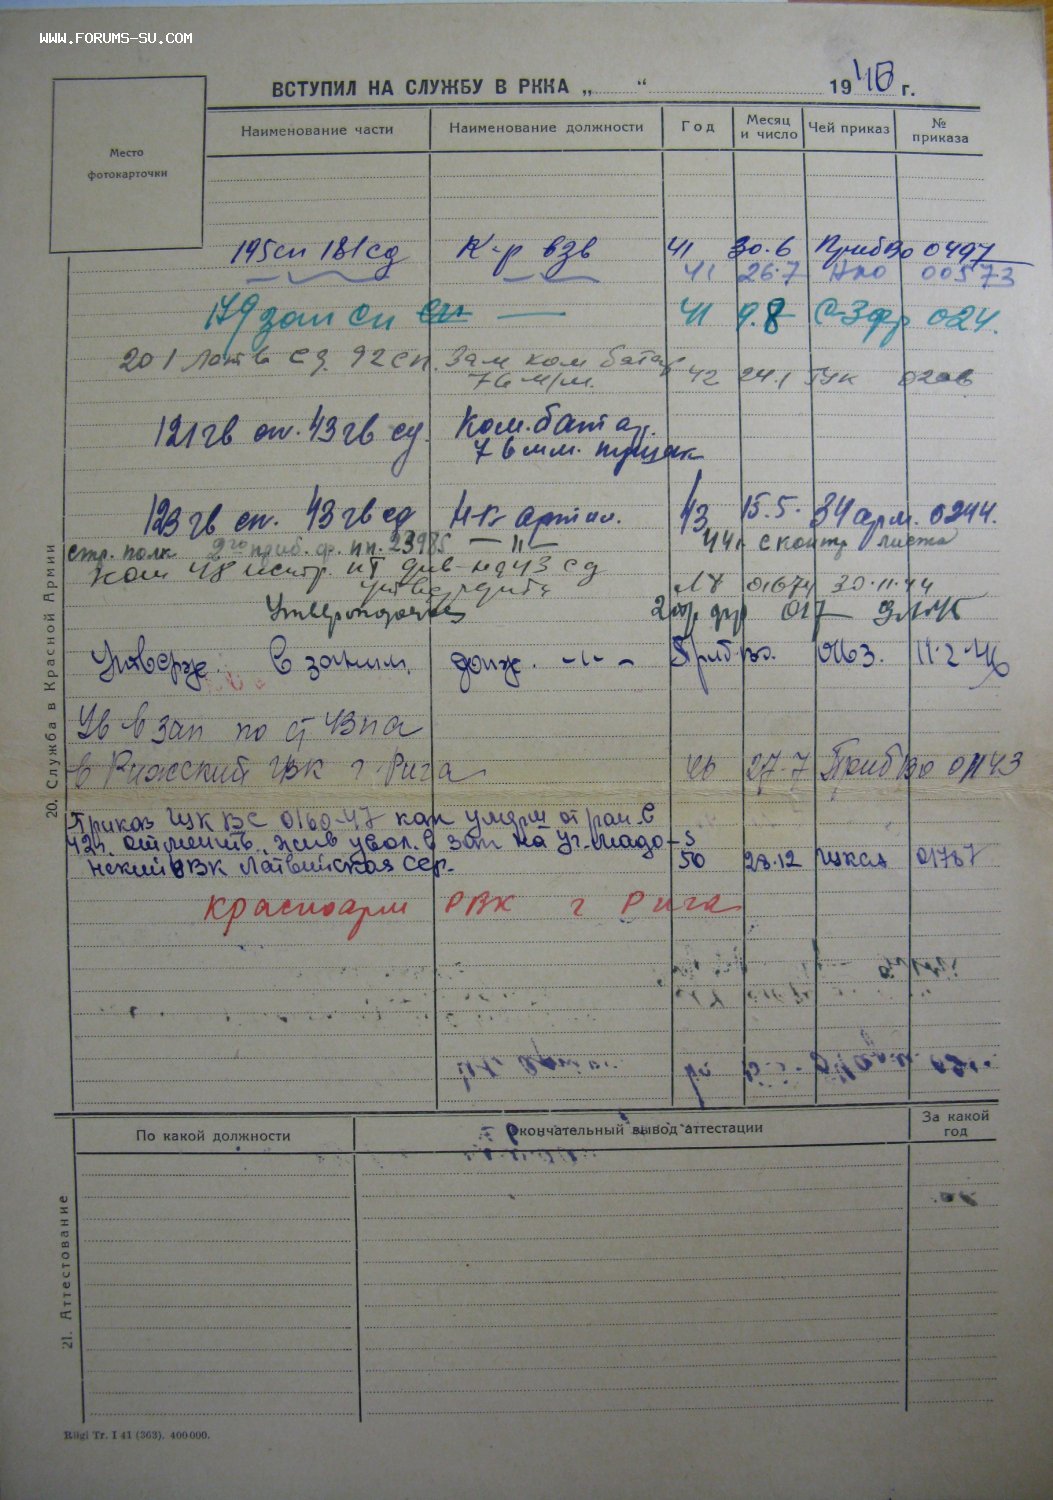 WWW.FORUMS-SU.COM
ВСТУПИЛ НА СЛУЖБУ В РККА „ “ 1940 г.
Место
фотокарточки
Наименование части Наименование должности Год Месяц и число Чей приказ № приказа
195 сп 181 сд К-р взв 41 30.6 ПрибВо 0497
41 26.7 НКО 00573
179 зап сп сп — 41 9.8 С-З фр 024.
201 Латв сд. 92 сп. Зам ком батар 42 24.1
76 м/м.
121 гв сп. 43 гв сд. Ком. бат
76 мм. пушек
123 гв сп. 43 гв сд Н-к артил. 43 15.5. 34 арм. 0244.
стр. полк 2го приб. ф. пп. 23985 — " — 44г с контр листа
ком 48 истр. ПТ див-на 43 сд
01674 30.11.44
017
Утвержд. в заним. долж. -"- ПрибВо. 0163. 11.2.46
Ув в зап по ст 43 па
в Рижский ГВК г. Рига 46 27.7 ПрибВо 01143
Приказ ГУК ВС 0160-47 как умерш от ран. в
42г. отменить, жив увол. в зап на уч. Мадо-
нский РВК Латвийская ССР. 50 28.12 01767
Красноарм РВК г Рига
20. Служба в Красной Армии
По какой должности Окончательный вывод аттестации За какой год
21. Аттестование
Rīgi Tr. I 41 (363). 400000.